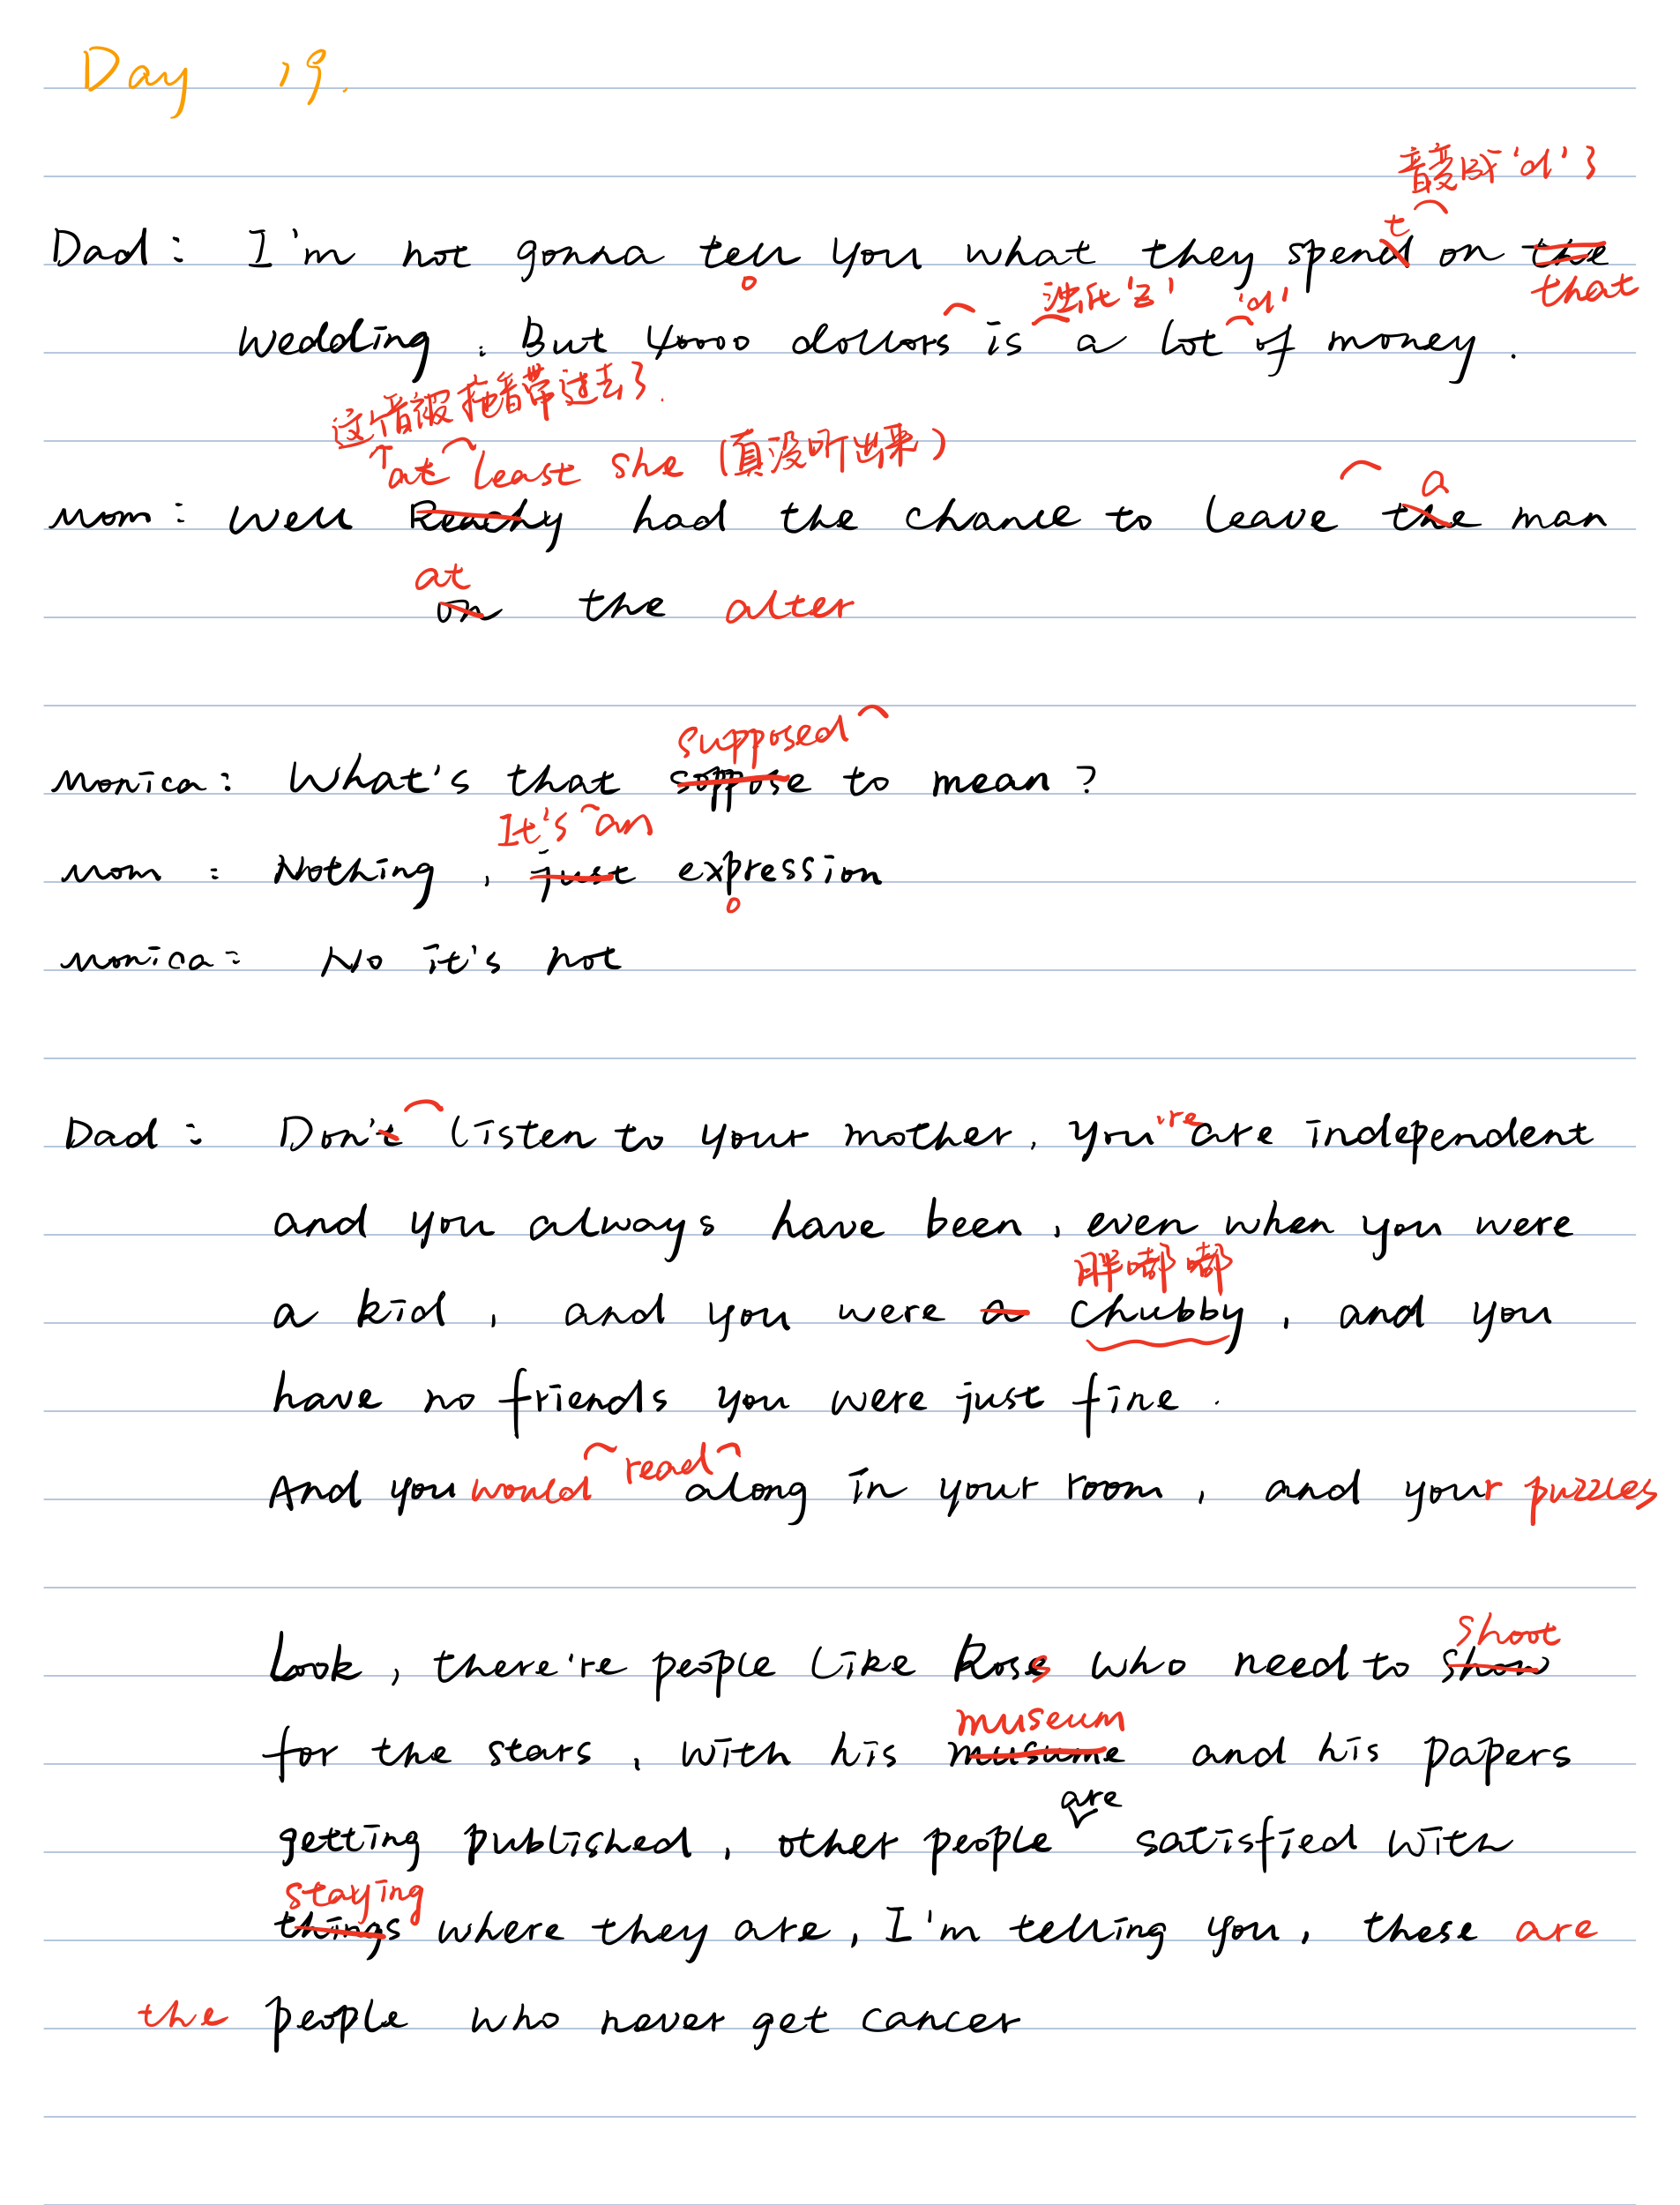 Day 19.
音变成'd'了
t
Dad: I'm not gonna tell you what they spend on the
that
浊化'z' 'd'
wedding. But 40000 dollors is a lot of money.
这个音被拖音带过去了.
↑at least she (真没听出来)
a
Mom: Well Reachy had the chance to leave the man
at
on the alter
supposed
Monica: What's that soppose to mean?
It's an
Mom: Nothing, just expression
Monica: No it's not
Dad: Don't listen to your mother, you 're are independent
and you always have been, even when you were
胖嘟嘟
a kid, and you were a chubby, and you
have no friends you were just fine.
And you would read along in your room, and your puzzles
shoot
Look, there're people like Ross who need to show
for the stars, with his musume and his papers
museum
are
getting published, other people satisfied with
staying
things where they are, I'm telling you, these are
the people who never get cancer